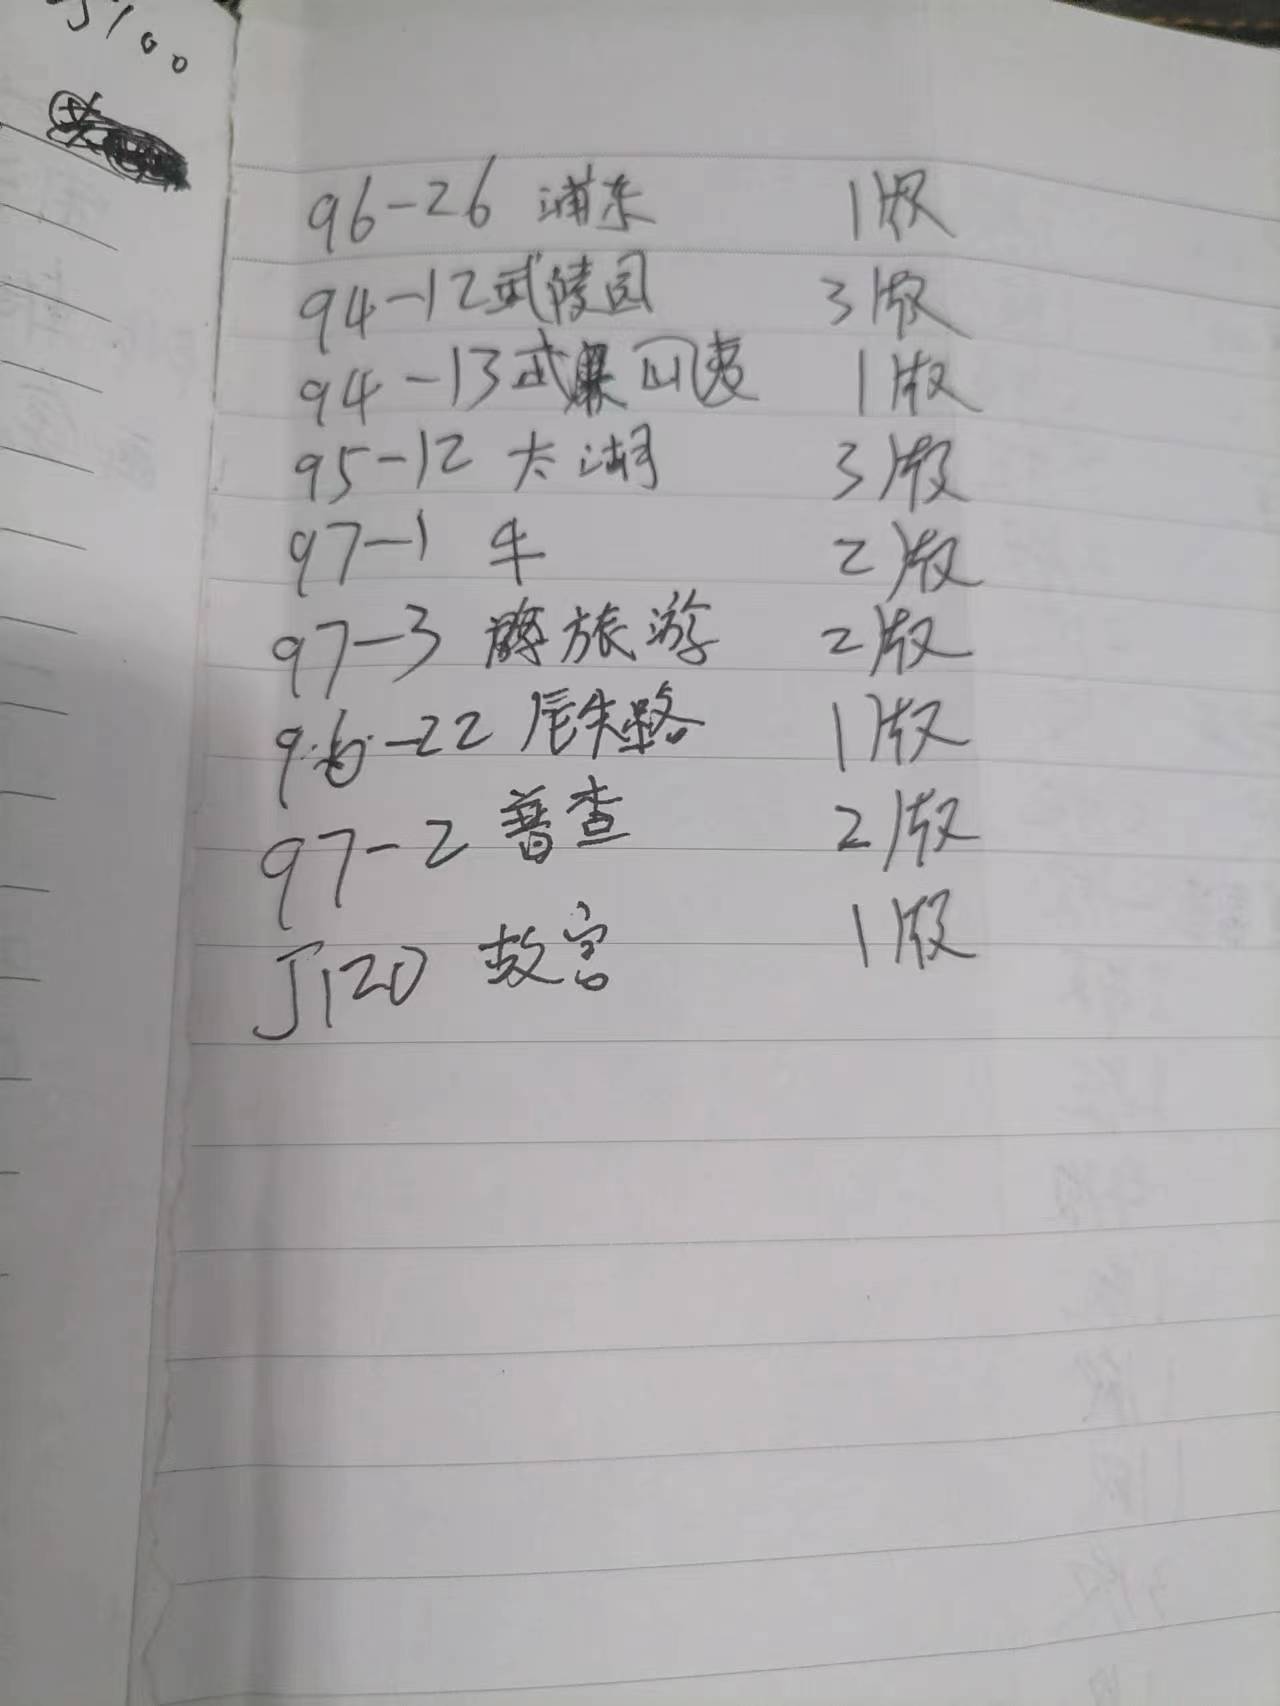 J100
96-26 浦东 1版
94-12武陵园 3版
94-13武 1版
95-12 太湖 3版
97-1 牛 2版
97-3 旅游 2版
96-22 铁路 1版
97-2 普查 2版
J120 故宫 1版